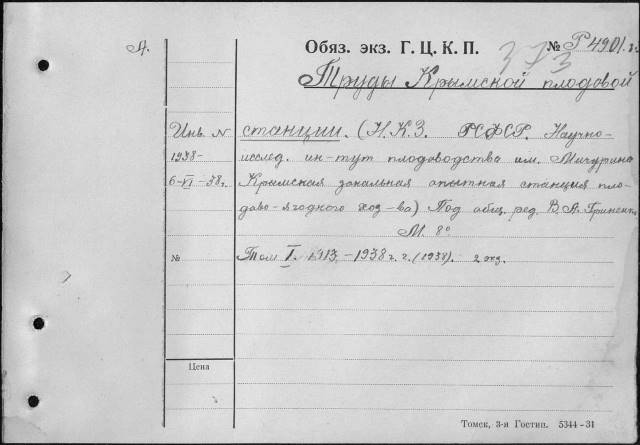 А.
Обяз. экз. Г. Ц. К. П. № Р 4901 г.
373
Труды Крымской плодовой
Инв. N станции. (Н.К.З. РСФСР. Научно-
1938- исслед. ин-тут плодоводства им. Мичурина
6-VI-38г. Крымская зональная опытная станция пло-
дово-ягодного хоз-ва) Под общ. ред. В. А. Гриненк.
М. 8º
№ Том I. 1913-1938 г. г. (1938). 2 экз.
Цена
Томск, 3-я Гостип. 5344-31